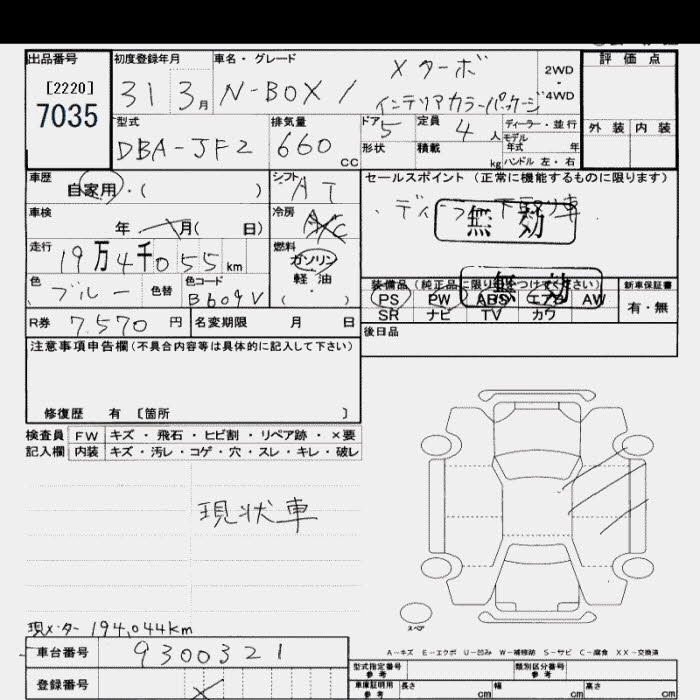 出品番号
[2220]
7035
初度登録年月
31 3月
車名・グレード
N-BOX / Xターボ
インテリアカラーパッケージ
2WD
4WD
評価点
外装 内装
型式
DBA-JF2
排気量
660 CC
ドア 5
定員 4 人
形状
積載 kg
ディーラー・並行
モデル
年式 年
ハンドル 左・右
車歴
自家用・( )
シフト
AT
車検
年 月( 日)
冷房
A/C
走行
19万4千055 km
燃料
ガソリン
軽油
( ・ )
色
ブルー
色替
色コード
B609V
R券 7.570 円
名変期限 月 日
セールスポイント(正常に機能するものに限ります)
無効
装備品(純正品に限り をつけてください)
無効
PS PW ABS エアB AW
SR ナビ TV カワ
新車保証書
有・無
後日品
注意事項申告欄(不具合内容等は具体的に記入して下さい)
修復歴 有 [箇所 ]
検査員 FW キズ・飛石・ヒビ割・リペア跡・×要
記入欄 内装 キズ・汚レ・コゲ・穴・スレ・キレ・破レ
現状車
現メーター 194,044km
車台番号 9300321
登録番号
スペア
A-キズ E-エクボ U-凹み W-補修跡 S-サビ C-腐食 XX-交換済
型式指定番号
参考
類別区分番号
参考
車庫証明用
参考
長さ cm
幅 cm
高さ cm